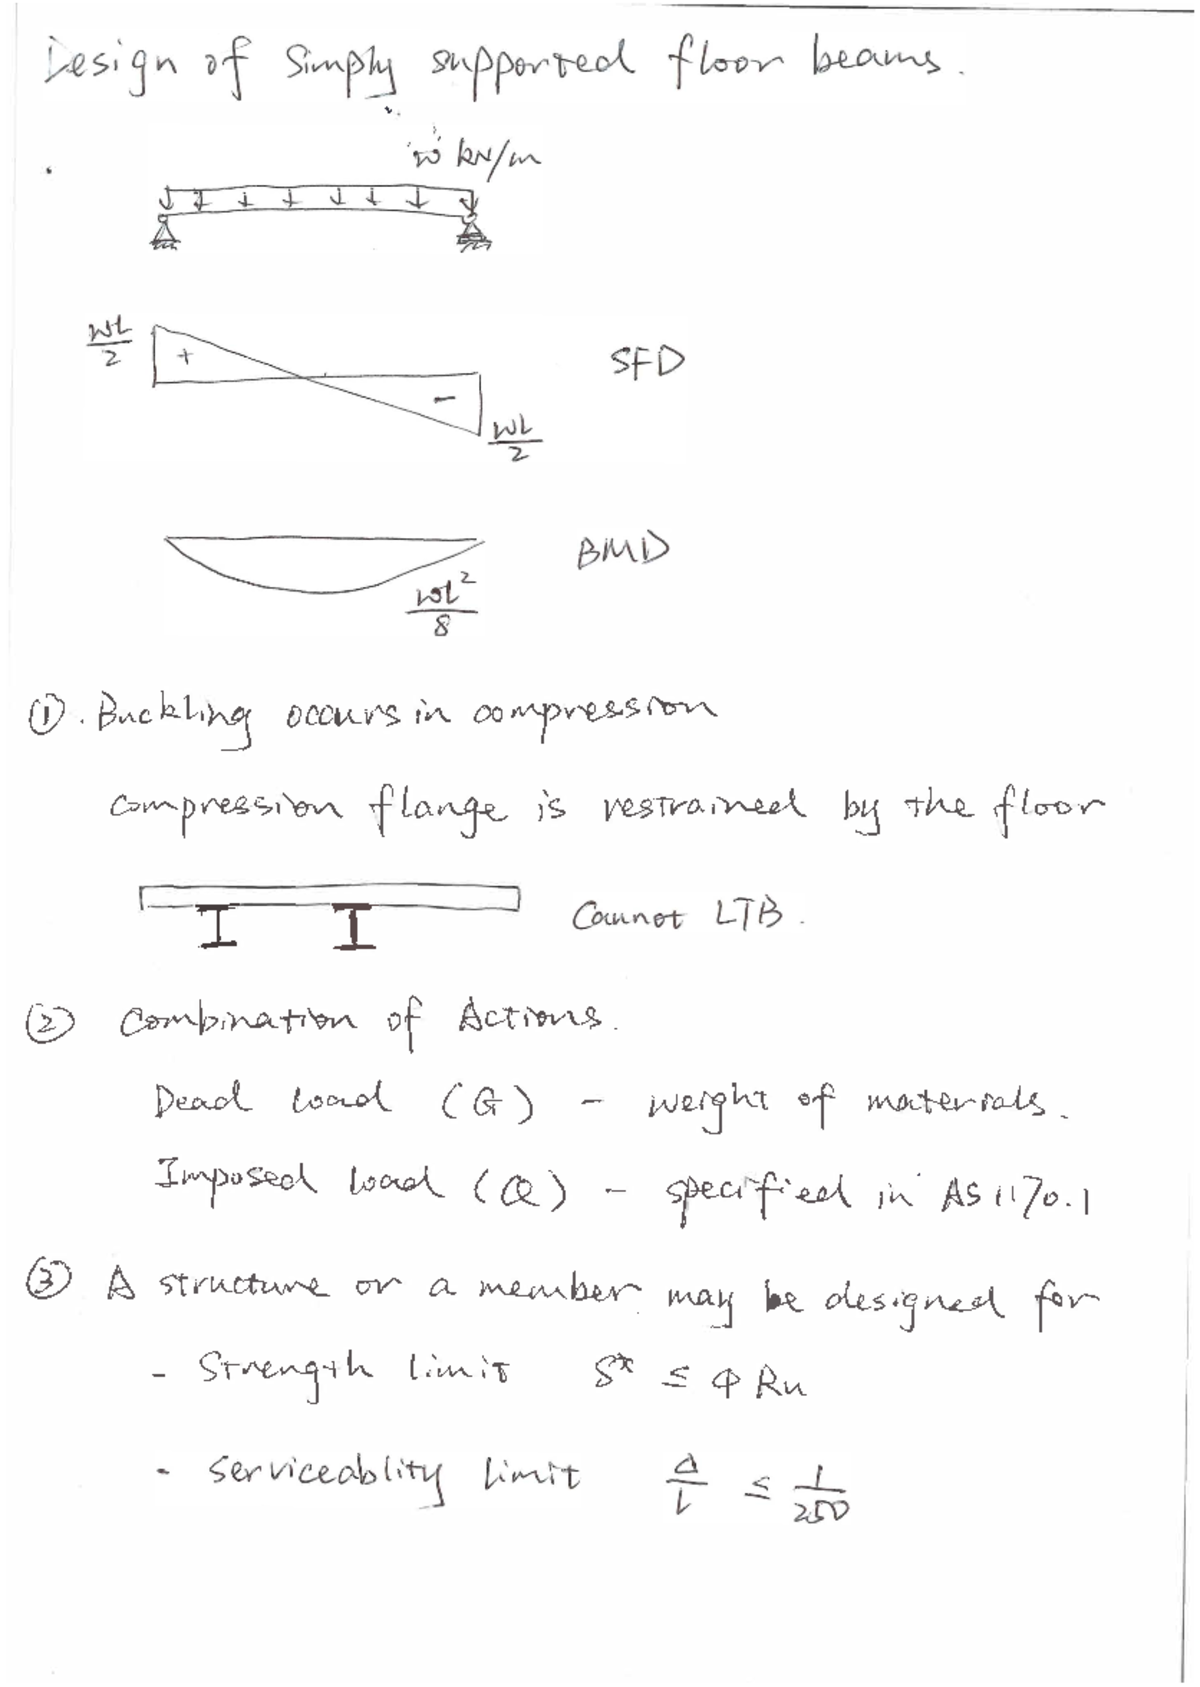 Design of Simply supported floor beams.
w kN/m
wL/2
+
SFD
-
wL/2
BMD
wL²/8
①. Buckling occurs in compression
compression flange is restrained by the floor
Cannot LTB.
② Combination of Actions.
Dead load (G) - weight of materials.
Imposed load (Q) - specified in AS 1170.1
③ A structure or a member may be designed for
- Strength limit S* ≤ φ Ru
- serviceablity limit Δ/L ≤ 1/250